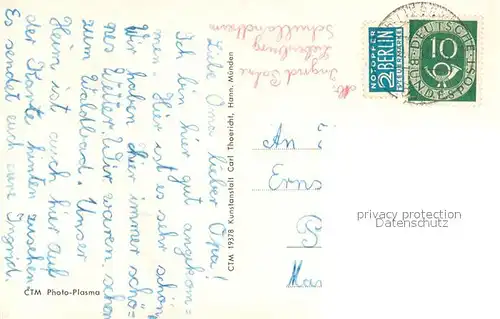 Liebe Oma, lieber Opa!
Ich bin hier gut angekom-
men. Hier ist es sehr schön
Wir haben hier immer schö-
nes Wetter. Wir waren schon
zum Waldbad. Unser
Heim ist auch hier auf
der Karte hinten zusehen.
Es sendet euch eure Ingrid.
Abs.
Ingrid
Liebenburg
Schullandheim
CTM 19378 Kunstanstalt Carl Thoericht, Hann. Münden
CTM Photo-Plasma
NOTOPFER
2 BERLIN
STEUERMARKE
10
DEUTSCHE
BUNDESPOST
An
Erns
B
Mar
privacy protection
Datenschutz